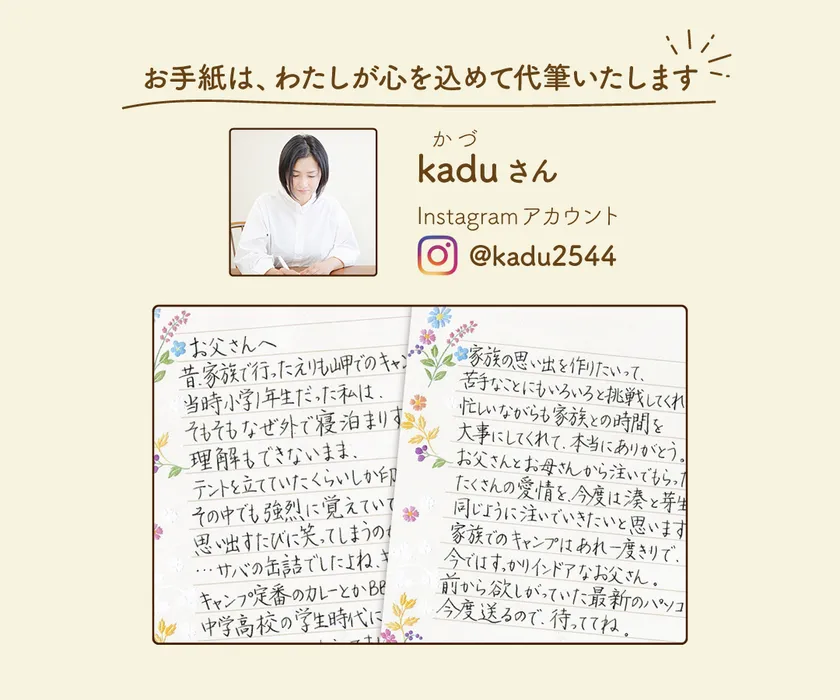 お手紙は、わたしが心を込めて代筆いたします
かづ
kadu さん
Instagramアカウント
@kadu2544
お父さんへ
昔、家族で行ったえりも岬でのキャン
当時小学1年生だった私は、
そもそもなぜ外で寝泊まりす
理解もできないまま、
テントを立てていたくらいしか印
その中でも強烈に覚えていて
思い出すたびに笑ってしまうのが
…サバの缶詰でしたよね、
キャンプ定番のカレーとかBB
中学高校の学生時代に
家族の思い出を作りたいって、
苦手なことにもいろいろと挑戦してくれ
忙しいながらも家族との時間を
大事にしてくれて、本当にありがとう。
お父さんとお母さんから注いでもらった
たくさんの愛情を、今度は湊と芽生
同じように注いでいきたいと思います
家族でのキャンプはあれ一度きりで、
今ではすっかりインドアなお父さん。
前から欲しがっていた最新のパソコ
今度送るので、待っててね。